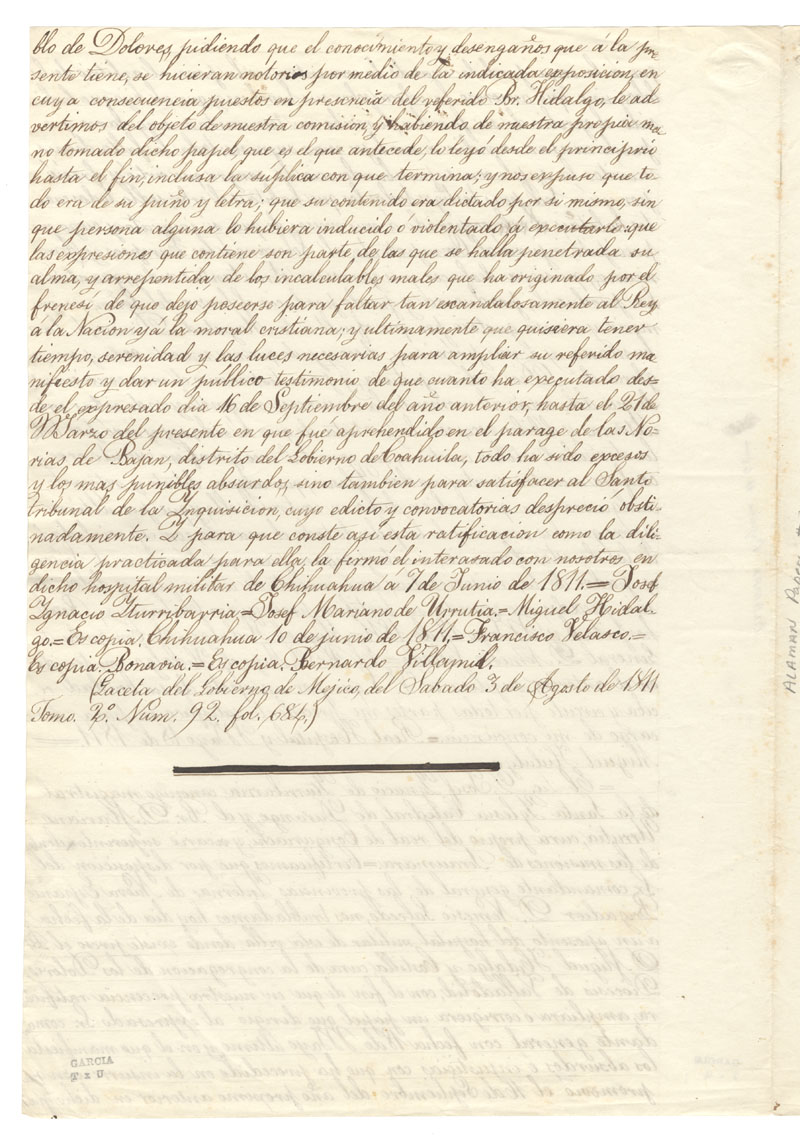 blo de Dolores, pidiendo que el conocimiento y desengaños que á la pre
sente tiene, se hicieran notorios por medio de la indicada exposicion, en
cuya consecuencia puestos en presencia del referido Br. Hidalgo, le ad-
vertimos del objeto de nuestra comision, y habiendo de nuestra propia ma
no tomado dicho papel, que es el que antecede, lo leyó desde el principio
hasta el fin, inclusa la súplica con que termina; y nos expuso que to-
do era de su puño y letra; que su contenido era dictado por si mismo, sin
que persona alguna lo hubiera inducido ó violentado á executarlo: que
las expresiones que contiene son parte de las que se halla penetrada su
alma, y arrepentida de los incalculables males que ha originado por el
frenesí de que dejo poseerse para faltar tan escandalosamente al Rey
á la Nacion y á la moral cristiana; y ultimamente que quisiera tener
tiempo, serenidad y las luces necesarias para ampliar su referido ma
nifiesto y dar un público testimonio de que cuanto ha executado des-
de el expresado dia 16 de Septiembre del año anterior, hasta el 21 de
Marzo del presente en que fue aprehendido en el parage de las No-
rias de Bajan, distrito del Gobierno de Coahuila, todo ha sido excesos
y los mas punibles absurdos, sino tambien para satisfacer al Santo
tribunal de la Ynquisicion, cuyo edicto y convocatorias despreció obsti-
nadamente. Y para que conste asi esta ratificacion como la dili-
gencia practicada para ella, la firmó el interasado con nosotros en
dicho hospital militar de Chihuahua a 7 de Junio de 1811.= Josef
Ygnacio Yturribarria.=Josef Mariano de Urrutia.= Miguel Hidal-
go.= Es copia. Chihuahua 10 de junio de 1811.= Francisco Velasco.=
Es copia. Bonavia.= Es copia. Bernardo Villamil.
(Gaceta del Gobierno de Mejico, del Sabado 3 de Agosto de 1811
Tomo. 2º. Num. 92. fol. 684.)
GARCIA
T x U
ALAMAN PAPERS